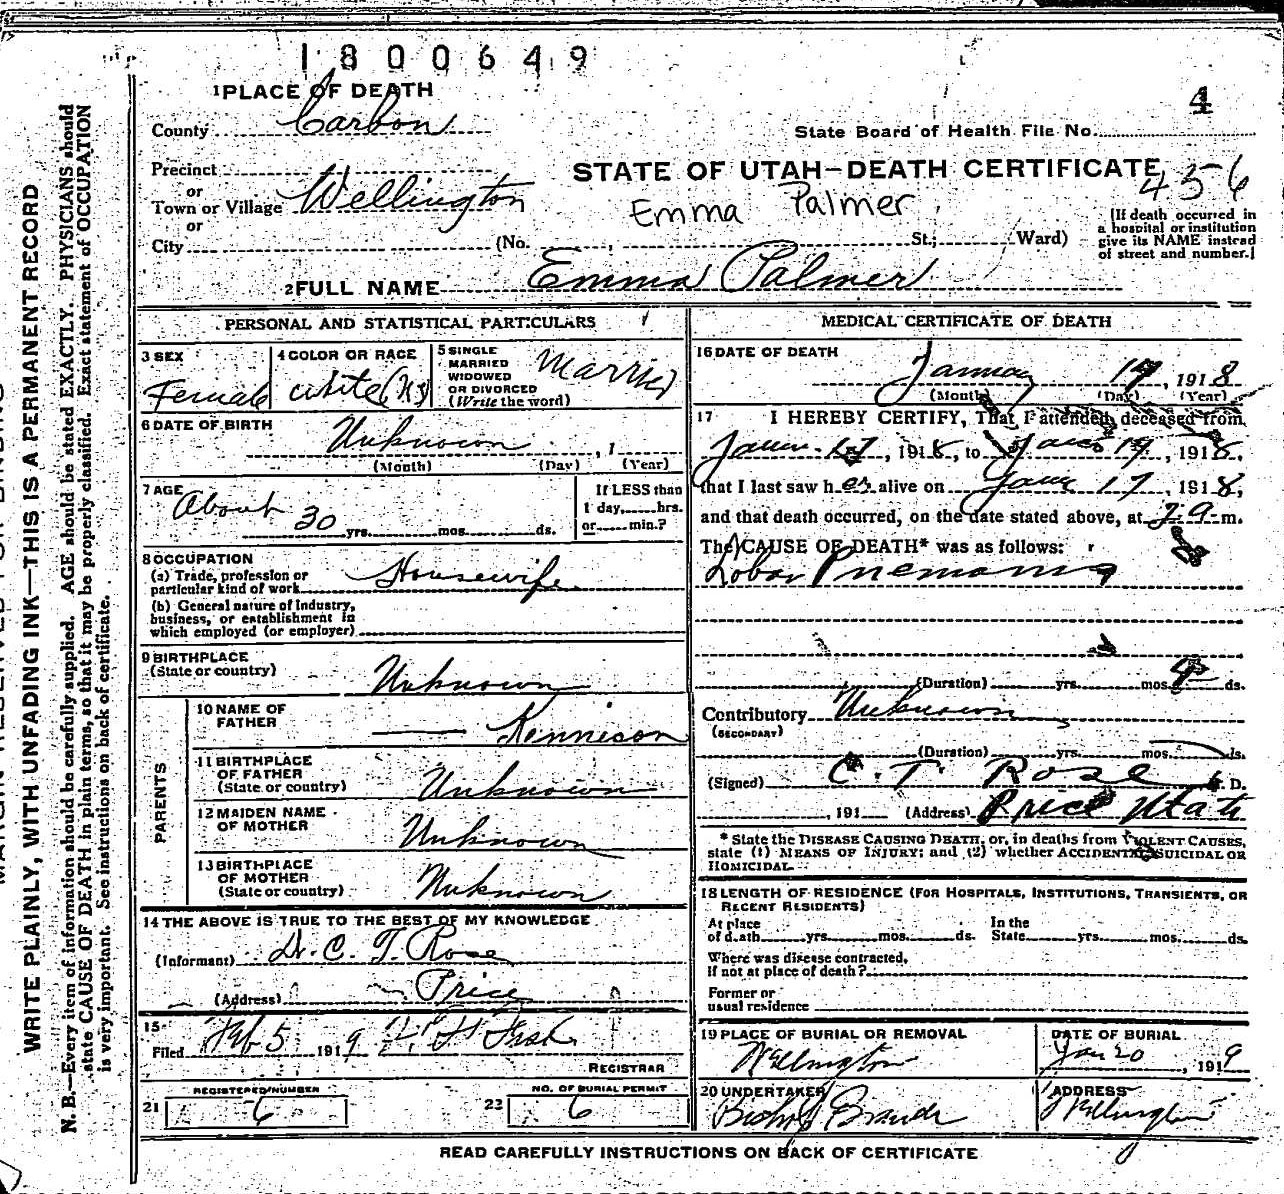 1800649
1 PLACE OF DEATH
4
County Carbon
State Board of Health File No.
Precinct
STATE OF UTAH—DEATH CERTIFICATE
456
or
Town or Village Wellington
Emma Palmer
or
City (No. , St.; Ward)
(If death occurred in a hospital or institution give its NAME instead of street and number.)
2 FULL NAME Emma Palmer
PERSONAL AND STATISTICAL PARTICULARS
3 SEX
Female
4 COLOR OR RACE
white
5 SINGLE
MARRIED
WIDOWED
OR DIVORCED
(Write the word)
Married
6 DATE OF BIRTH
Unknown , 1
(Month) (Day) (Year)
7 AGE
About 30 yrs. mos. ds.
If LESS than
1 day, hrs.
or min.?
8 OCCUPATION
(a) Trade, profession or
particular kind of work Housewife
(b) General nature of Industry,
business, or establishment in
which employed (or employer)
9 BIRTHPLACE
(State or country)
Unknown
PARENTS
10 NAME OF
FATHER
— Kennison
11 BIRTHPLACE
OF FATHER
(State or country) Unknown
12 MAIDEN NAME
OF MOTHER Unknown
13 BIRTHPLACE
OF MOTHER
(State or country) Unknown
14 THE ABOVE IS TRUE TO THE BEST OF MY KNOWLEDGE
(Informant) Dr. C. T. Rose
(Address) Price
15
Filed Feb 5 1919
REGISTRAR
REGISTERED NUMBER
21 6
NO. OF BURIAL PERMIT
22 6
MEDICAL CERTIFICATE OF DEATH
16 DATE OF DEATH
January 19, 1918
(Month) (Day) (Year)
17 I HEREBY CERTIFY, That I attended deceased from
17, 1918, to 19, 1918,
that I last saw her alive on 17, 1918,
and that death occurred, on the date stated above, at m.
The CAUSE OF DEATH* was as follows:
Lobar Pnemonia
(Duration) yrs. mos. ds.
Contributory Unknown
(SECONDARY)
(Duration) yrs. mos. ds.
(Signed) C. T. Rose D.
, 191 (Address) Price Utah
* State the DISEASE CAUSING DEATH, or, in deaths from VIOLENT CAUSES,
state (1) MEANS OF INJURY; and (2) whether ACCIDENTAL, SUICIDAL OR
HOMICIDAL
18 LENGTH OF RESIDENCE (FOR HOSPITALS, INSTITUTIONS, TRANSIENTS, OR
RECENT RESIDENTS)
At place
of death yrs. mos. ds.
In the
State yrs. mos. ds.
Where was disease contracted,
if not at place of death?
Former or
usual residence
19 PLACE OF BURIAL OR REMOVAL
Wellington
DATE OF BURIAL
Jan 20, 1919
20 UNDERTAKER
Bishop
ADDRESS
Wellington
READ CAREFULLY INSTRUCTIONS ON BACK OF CERTIFICATE
WRITE PLAINLY, WITH UNFADING INK—THIS IS A PERMANENT RECORD
N. B.—Every item of information should be carefully supplied. AGE should be stated EXACTLY. PHYSICIANS should
state CAUSE OF DEATH in plain terms, so that it may be properly classified. Exact statement of OCCUPATION
is very important. See instructions on back of certificate.